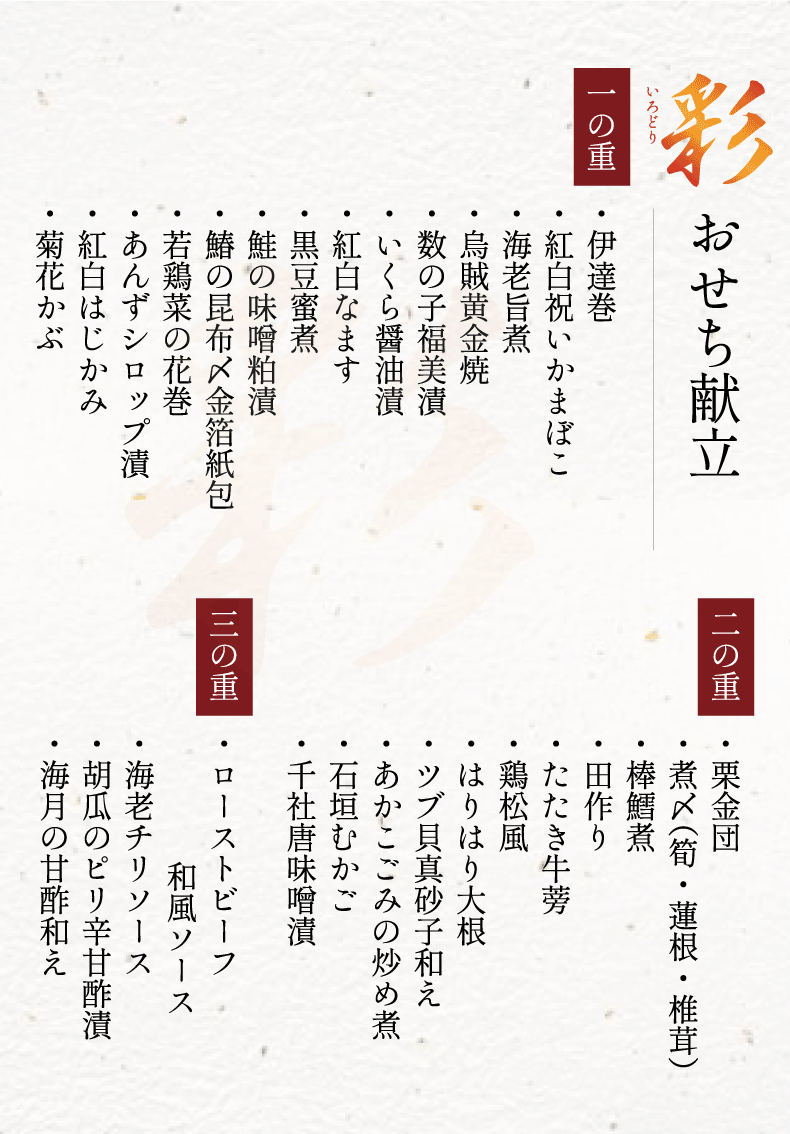 彩
いろどり
おせち献立
一の重
・伊達巻
・紅白祝いかまぼこ
・海老旨煮
・烏賊黄金焼
・数の子福美漬
・いくら醤油漬
・紅白なます
・黒豆蜜煮
・鮭の味噌粕漬
・鰆の昆布〆金箔紙包
・若鶏菜の花巻
・あんずシロップ漬
・紅白はじかみ
・菊花かぶ
二の重
・栗金団
・煮〆(筍・蓮根・椎茸)
・棒鱈煮
・田作り
・たたき牛蒡
・鶏松風
・はりはり大根
・ツブ貝真砂子和え
・あかこごみの炒め煮
・石垣むかご
・千社唐味噌漬
三の重
・ローストビーフ
和風ソース
・海老チリソース
・胡瓜のピリ辛甘酢漬
・海月の甘酢和え